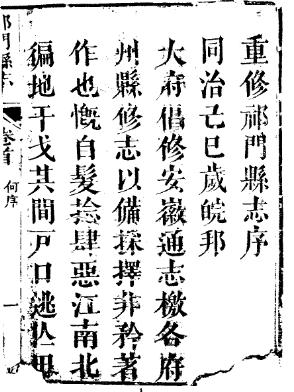 重修祁門縣志序
同治己巳歲皖邦
大府倡修安徽通志檄各府
州縣修志以備採擇非矜著
作也慨自髮捻肆惡江南北
徧地干戈其間戸口逃亾田
祁門縣志
卷首
何序
一